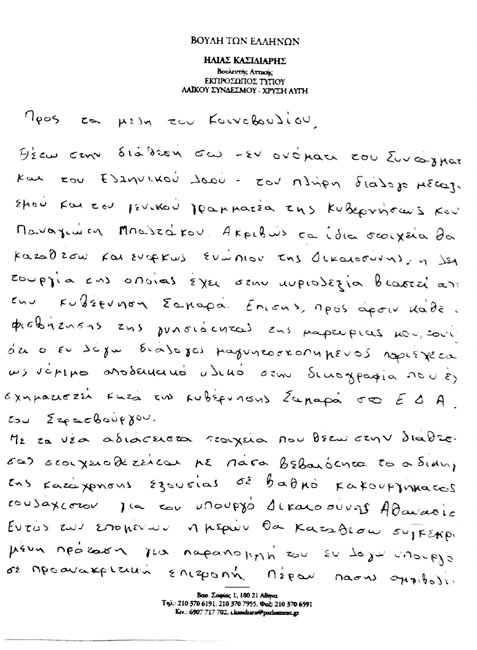 ΒΟΥΛΗ ΤΩΝ ΕΛΛΗΝΩΝ
ΗΛΙΑΣ ΚΑΣΙΔΙΑΡΗΣ
Βουλευτής Αττικής
ΕΚΠΡΟΣΩΠΟΣ ΤΥΠΟΥ
ΛΑΪΚΟΥ ΣΥΝΔΕΣΜΟΥ - ΧΡΥΣΗ ΑΥΓΗ
Προς τα μέλη του Κοινοβουλίου,
Θέτω στην διάθεσή σας -εν ονόματι του Συντάγματ
και του Ελληνικού Λαού- τον πλήρη διάλογο μεταξύ
εμού και του γενικού γραμματέα της Κυβερνήσεως κου
Παναγιώτη Μπαλτάκου. Ακριβώς τα ίδια στοιχεία θα
καταθέσω και ενόρκως ενώπιον της Δικαιοσύνης, η λει
τουργία της οποίας έχει στην κυριολεξία βιαστεί απ
την κυβέρνηση Σαμαρά. Επίσης, προς άρσιν κάθε
φισβήτησης της γνησιότητας της μαρτυρίας μου, τονί
ότι ο εν λόγω διάλογος μαγνητοσκοπημένος παρέχεται
ως νόμιμο αποδεικτικό υλικό στην δικογραφία που έχ
σχηματιστεί κατά της κυβέρνησης Σαμαρά στο Ε Δ Α
του Στρασβούργου.
Με τα νέα αδιάσειστα στοιχεία που θέτω στην διάθεσ
σας στοιχειοθετείται με πάσα βεβαιότητα το αδίκημ
της κατάχρησης εξουσίας σε βαθμό κακουργήματος
τουλάχιστον για τον υπουργό Δικαιοσύνης Αθανάσιο
Εντός των επομένων ημερών θα καταθέσω συγκεκρι
μένη πρόταση για παραπομπή του εν λόγω υπουργο
σε προανακριτική επιτροπή. Πέραν πάσης αμφιβολί
Βασ. Σοφίας 1, 100 21 Αθήνα
Τηλ.: 210 370 6191, 210 370 7955, Φαξ: 210 370 6591
Κιν.: 6907 717 702, i.kasidiaris@parliament.gr